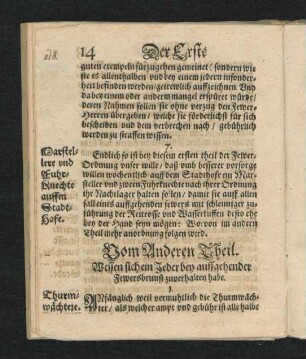 218.
14 Der Erste
guten exempeln fürzugehen gemeinet/ sondern wie
sie es allenthalben vnd bey einem jedern insonder-
heit befinden werden/ getrewlich auffzeichnen Vnd
da bey einem oder andern mangel erspüret würde/
deren Nahmen sollen sie ohne verzug den Fewer-
Herren übergeben/ welche sie förderlichst für sich
bescheiden vnd dem verbrechen nach/ gebührlich
werden zu straffen wissen.
7.
Marstel-
lere vnd
Fuhr-
Knechte
auffm
Stadt-
Hofe.
Endlich so ist bey diesem ersten theil der Fewer-
Ordnung vnser wille/ daß vmb besserer vorsorge
willen wochentlich auff dem Stadthofe ein Mar-
steller vnd zween Fuhrknechte nach ihrer Ordnung
ihr Nachtlager halten sollen/ damit sie auff allen
fall eines auffgehenden fewers mit schleuniger zu-
führung der Reitrosse vnd Wasserkuffen desto ehe
bey der Hand seyn mögen: Wovon im andern
Theil mehr anordnung folgen wird.
Vom Anderen Theil.
Wessen sich ein Jeder bey auffgehender
Fewersbrunst zuverhalten habe.
1.
Thurm-
wächtere.
ANfänglich weil vermuhtlich die Thurmwäch-
ter/ als welcher ampt vnd gebühr ist alle halbe